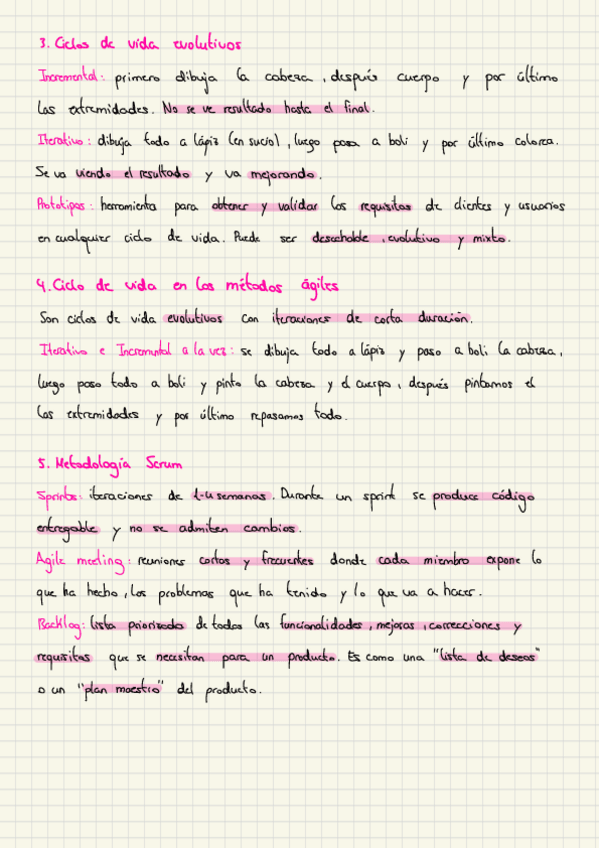 3. Ciclos de vida evolutivos
Incremental: primero dibuja la cabeza, después cuerpo y por último
las extremidades. No se ve resultado hasta el final.
Iterativo: dibuja todo a lápiz (en sucio), luego pasa a boli y por último colorea.
Se va viendo el resultado y va mejorando.
Prototipos: herramienta para obtener y validar los requisitos de clientes y usuarios
en cualquier ciclo de vida. Puede ser desechable, evolutivo y mixto.
4. Ciclo de vida en los métodos ágiles
Son ciclos de vida evolutivos con iteraciones de corta duración.
Iterativo e Incremental a la vez: se dibuja todo a lápiz y paso a boli la cabeza,
luego paso todo a boli y pinto la cabeza y el cuerpo, después pintamos el
las extremidades y por último repasamos todo.
5. Metodología Scrum
Sprints: iteraciones de 1-4 semanas. Durante un sprint se produce código
entregable y no se admiten cambios.
Agile meeting: reuniones cortas y frecuentes donde cada miembro expone lo
que ha hecho, los problemas que ha tenido y lo que va a hacer.
Backlog: lista priorizada de todas las funcionalidades, mejoras, correcciones y
requisitos que se necesitan para un producto. Es como una "lista de deseos"
o un "plan maestro" del producto.